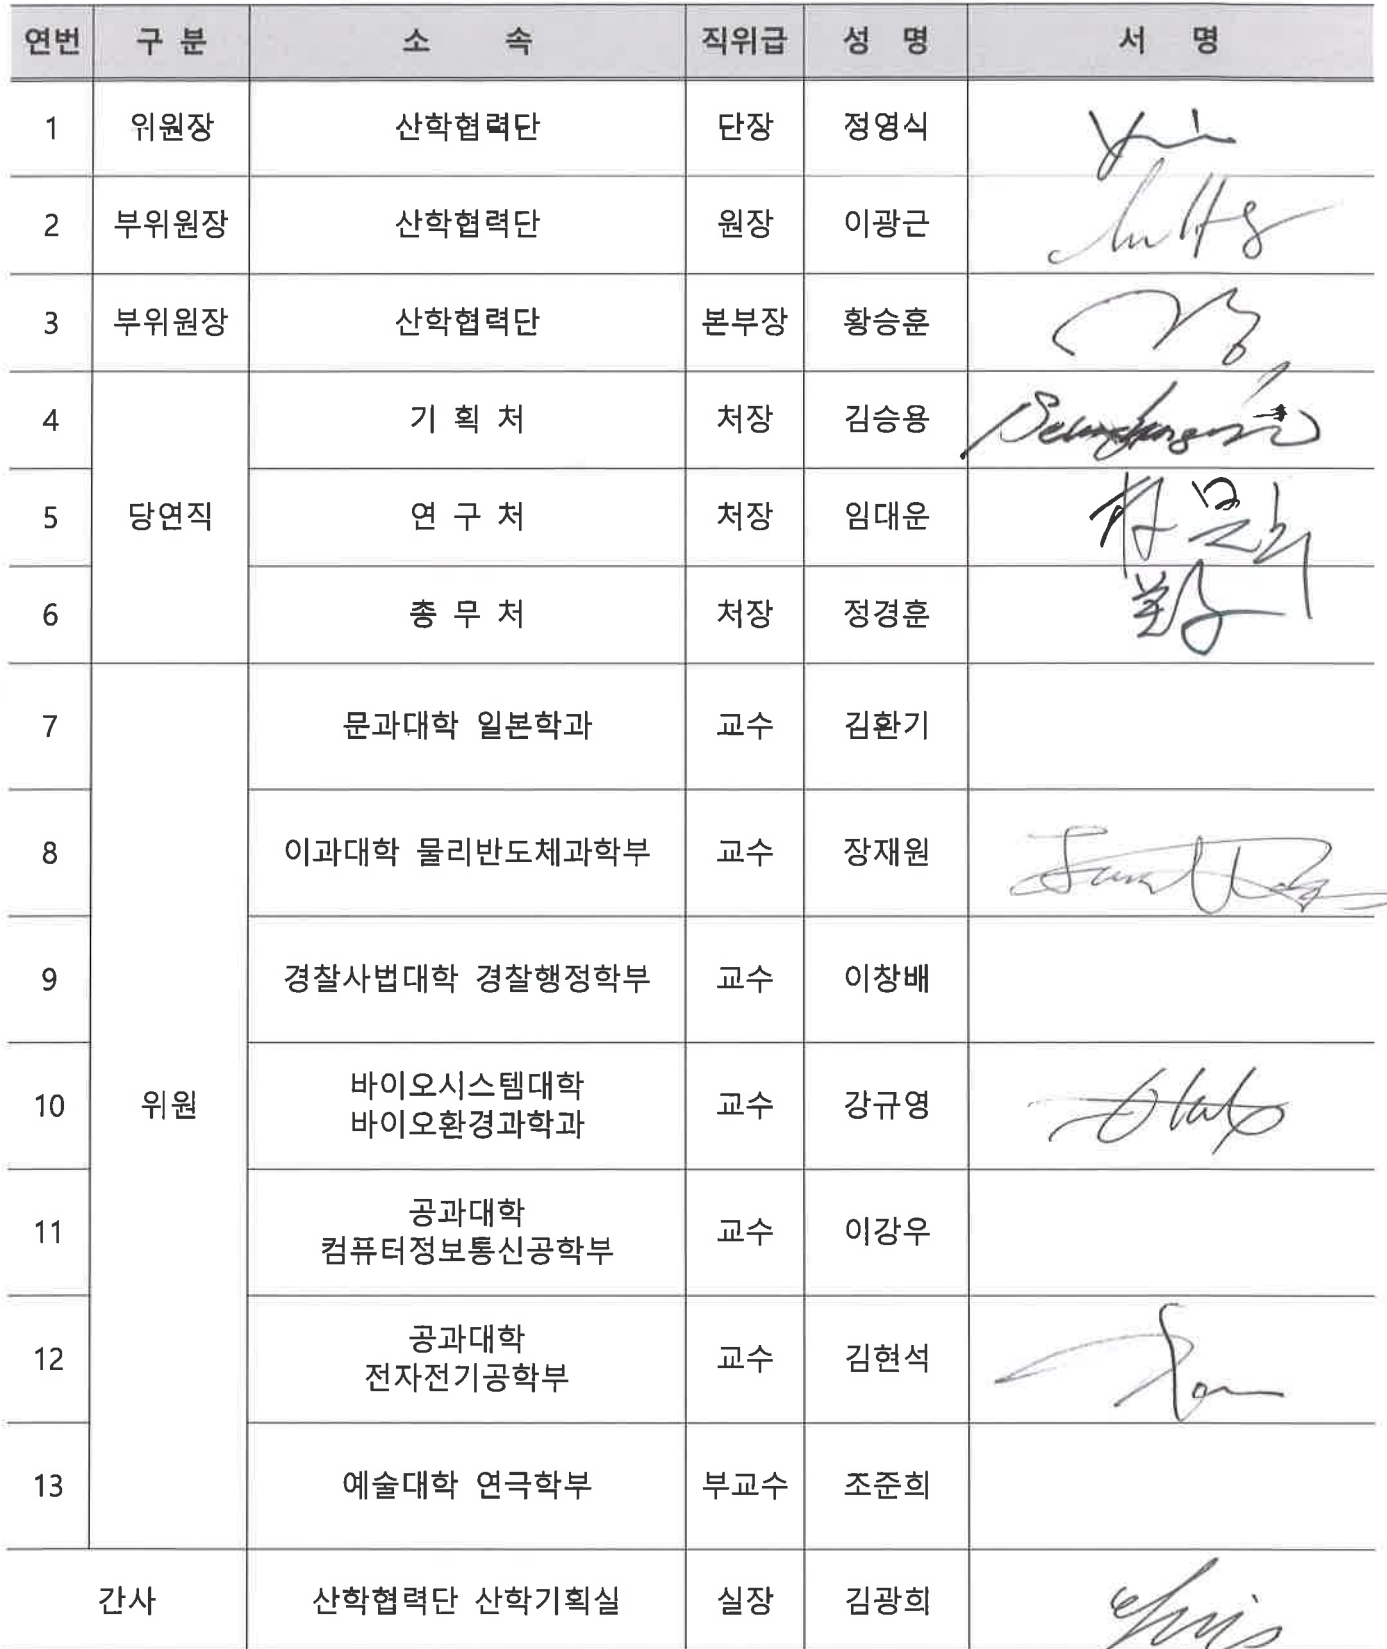 연번 구 분 소 속 직위급 성 명 서 명
1 위원장 산학협력단 단장 정영식
2 부위원장 산학협력단 원장 이광근
3 부위원장 산학협력단 본부장 황승훈
4 기 획 처 처장 김승용
5 당연직 연 구 처 처장 임대운
6 총 무 처 처장 정경훈
7 문과대학 일본학과 교수 김환기
8 이과대학 물리반도체과학부 교수 장재원
9 경찰사법대학 경찰행정학부 교수 이창배
바이오시스템대학
10 위원 바이오환경과학과 교수 강규영
공과대학
11 컴퓨터정보통신공학부 교수 이강우
공과대학
12 전자전기공학부 교수 김현석
13 예술대학 연극학부 부교수 조준희
간사 산학협력단 산학기획실 실장 김광희